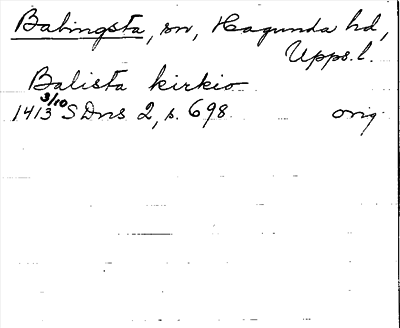 Balingsta, sn, Hagunda hd,
Upps. l.
Balista kirkio
1413 3/10 SDns 2, s. 698 orig